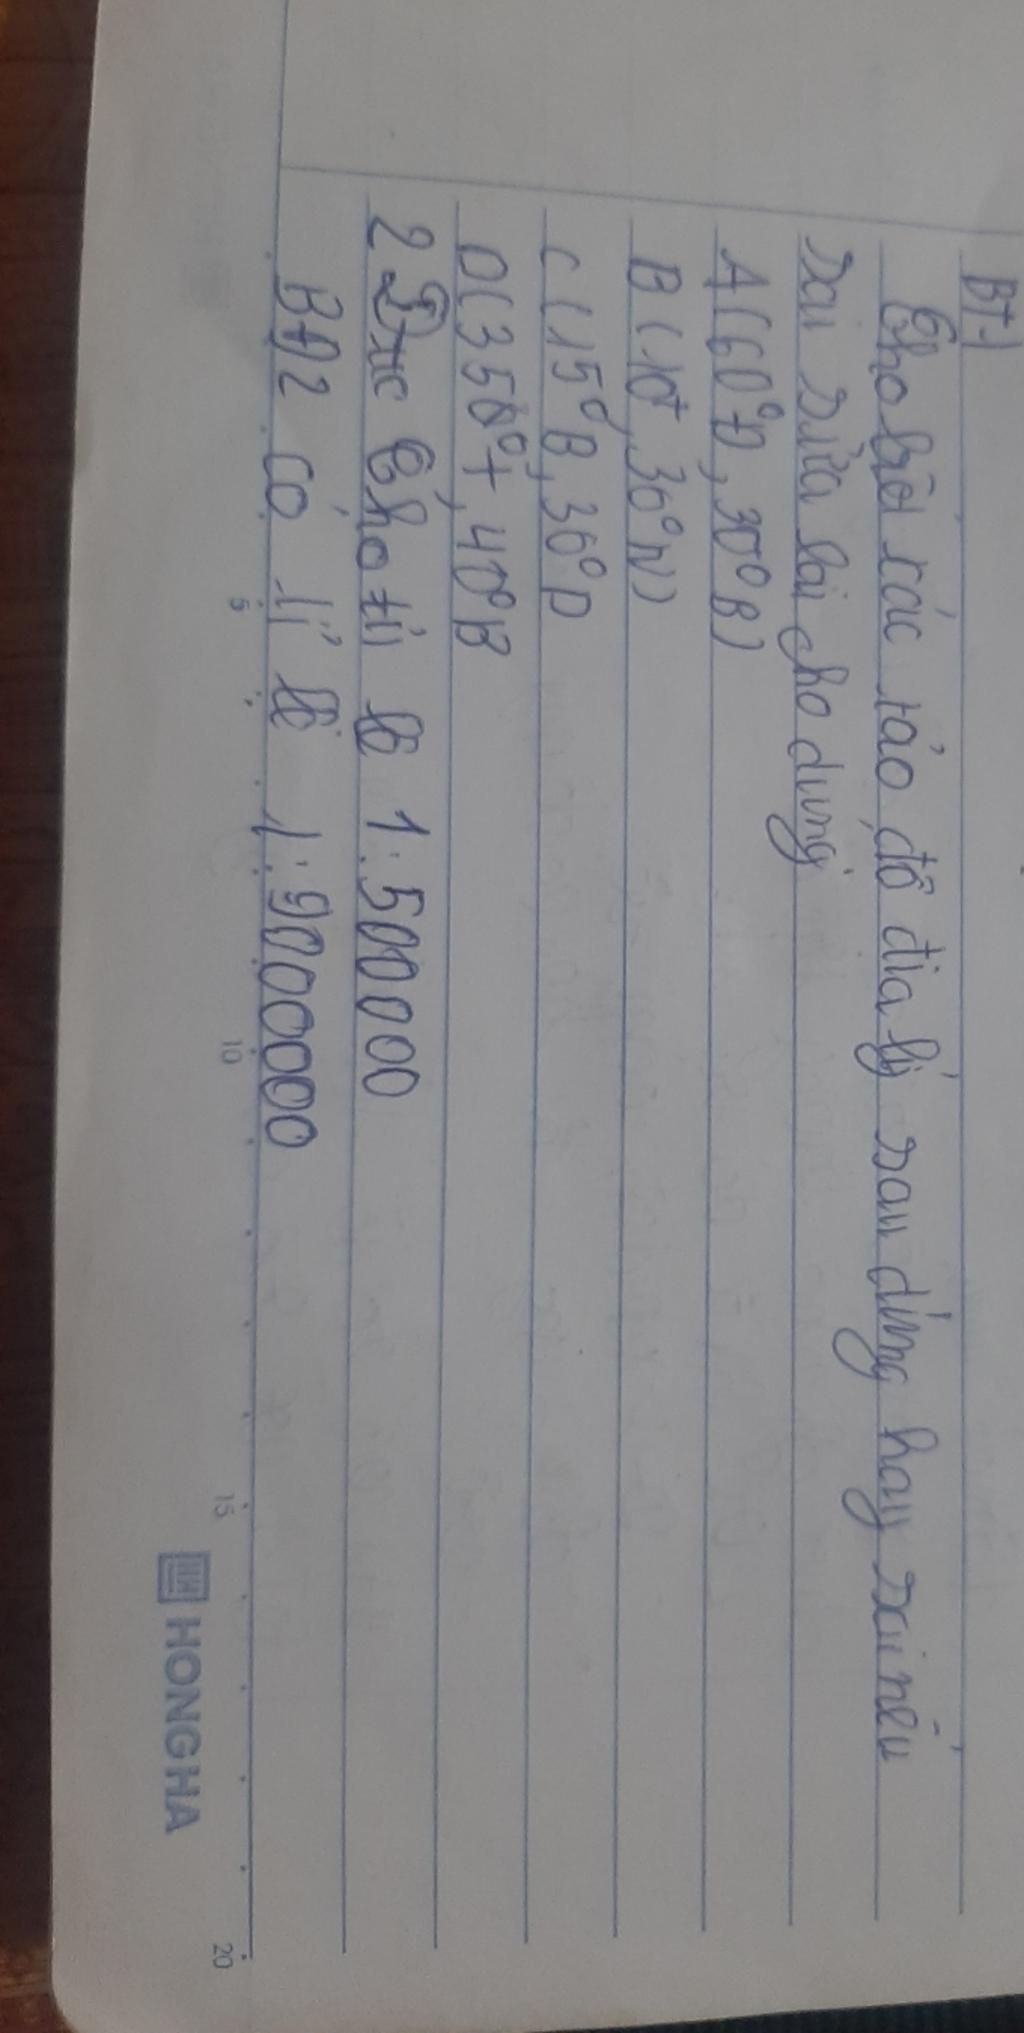 BT1
Cho biết các tảo độ địa lý sau đúng hay sai nếu
sai sửa lại cho đúng
A(60°Đ, 30°B)
B(10T, 30°N)
C(15°B, 30°D
D(350°T, 40°B
2 Đục Cho tỉ lệ 1:500000
BĐ2 có tỉ lệ 1:9000000
5
10
15
20
HONGHA